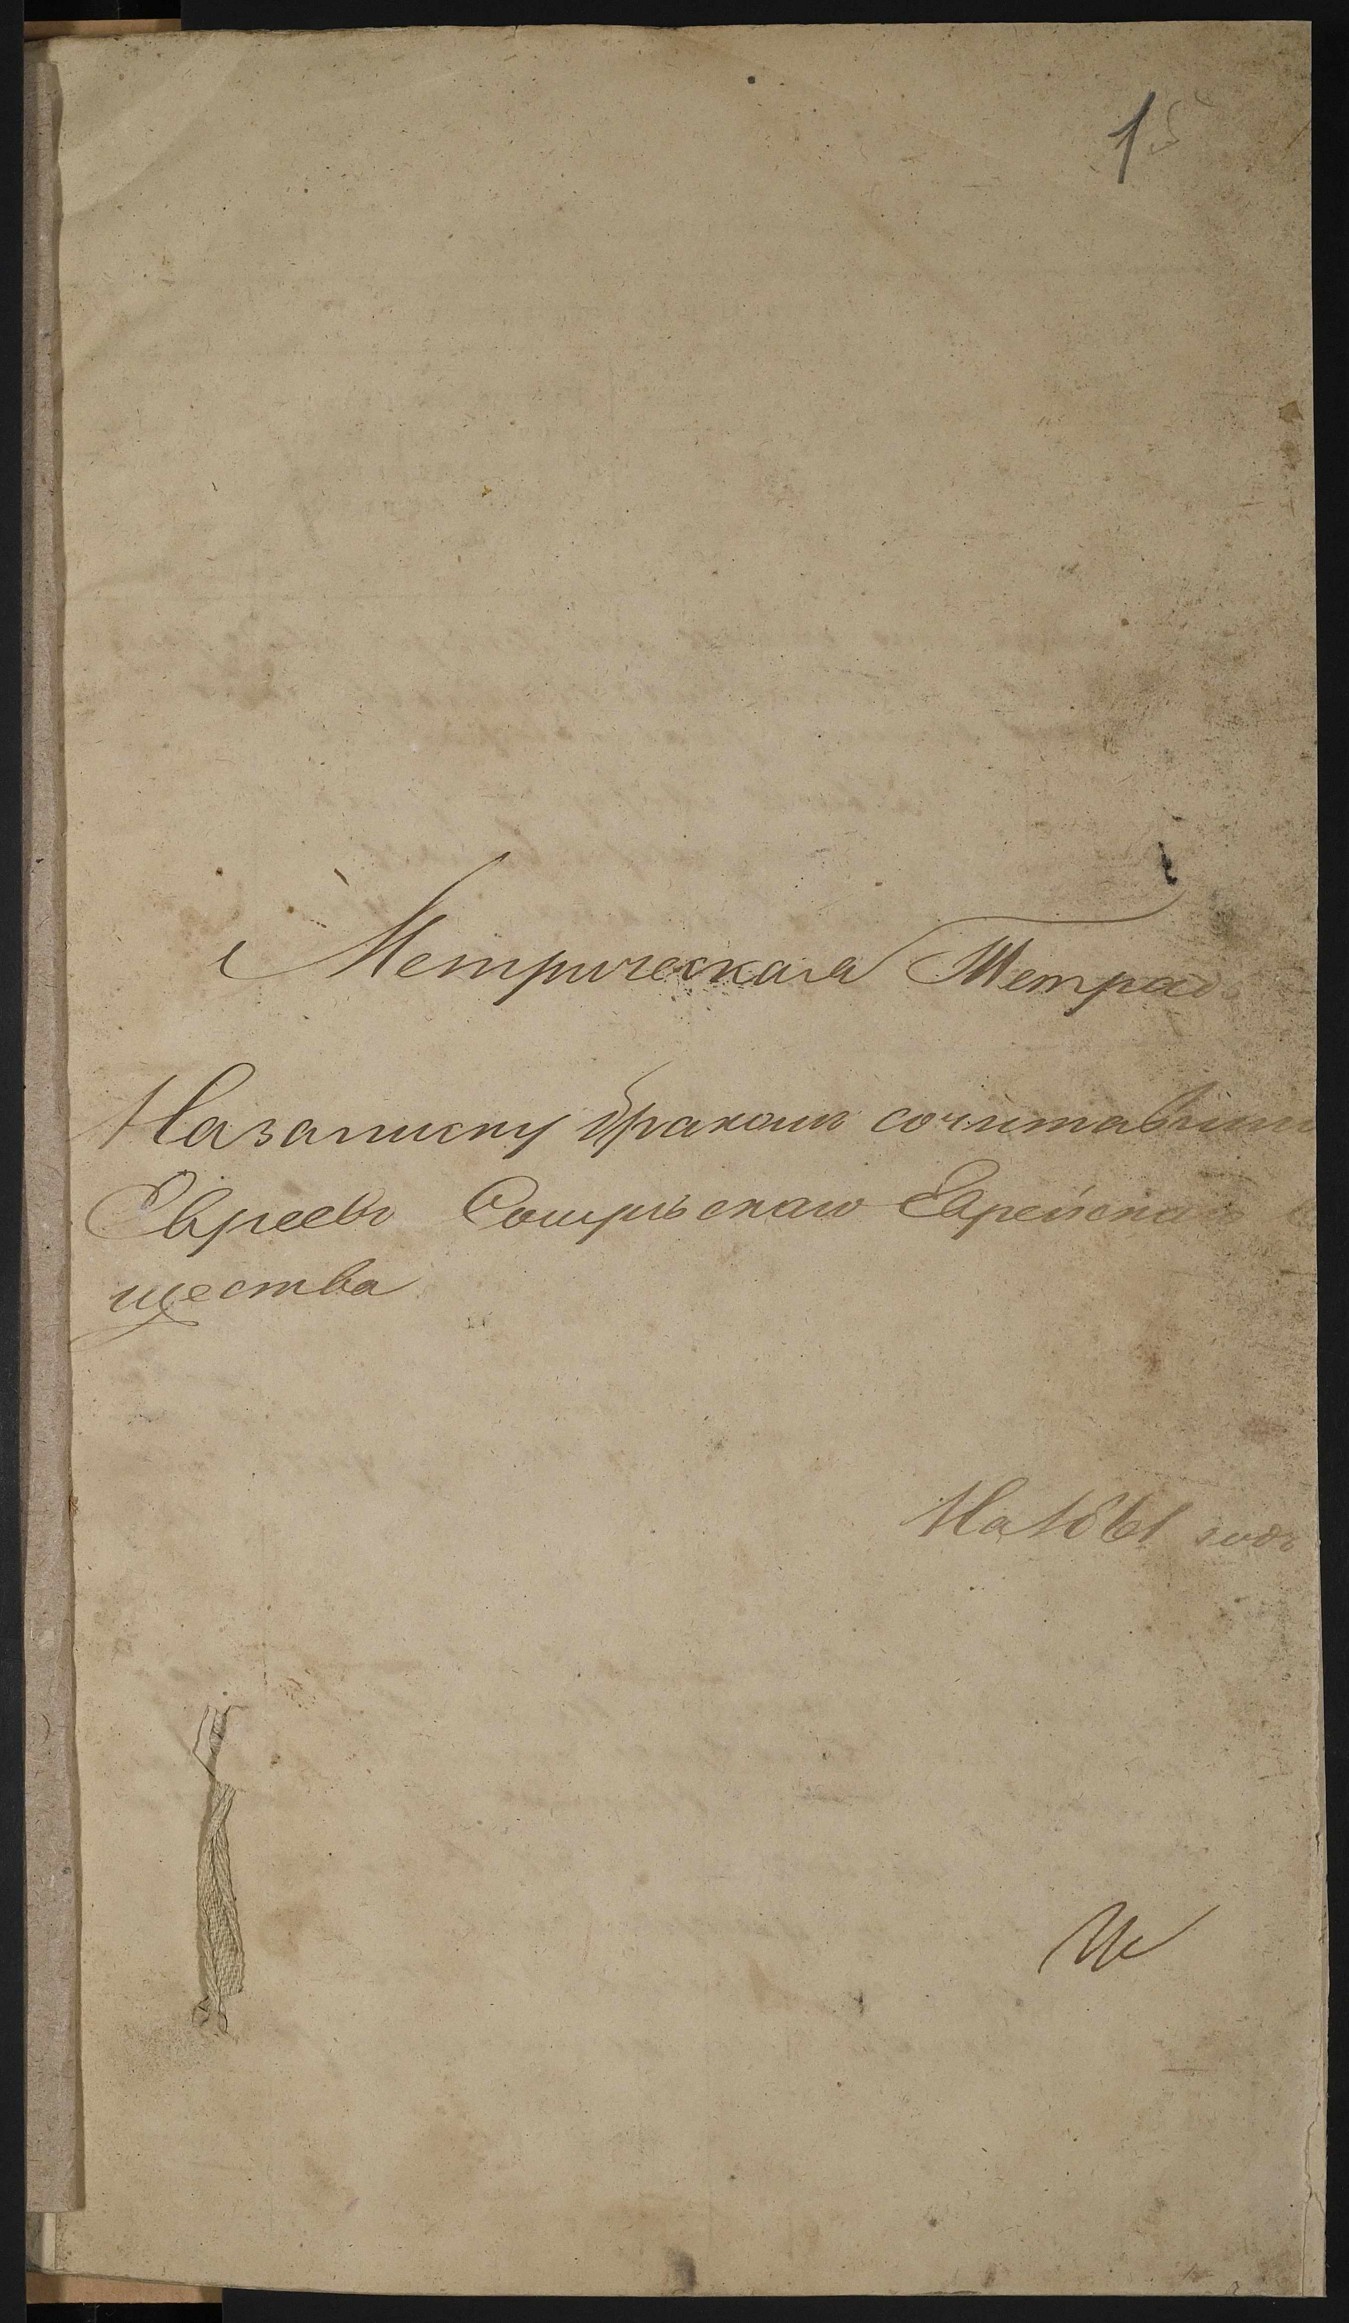 1
Метрическая Тетрадь
Назаписку бракомъ сочитавшихъ
Евреевъ Еврейскаго
щества
На 1861 годъ